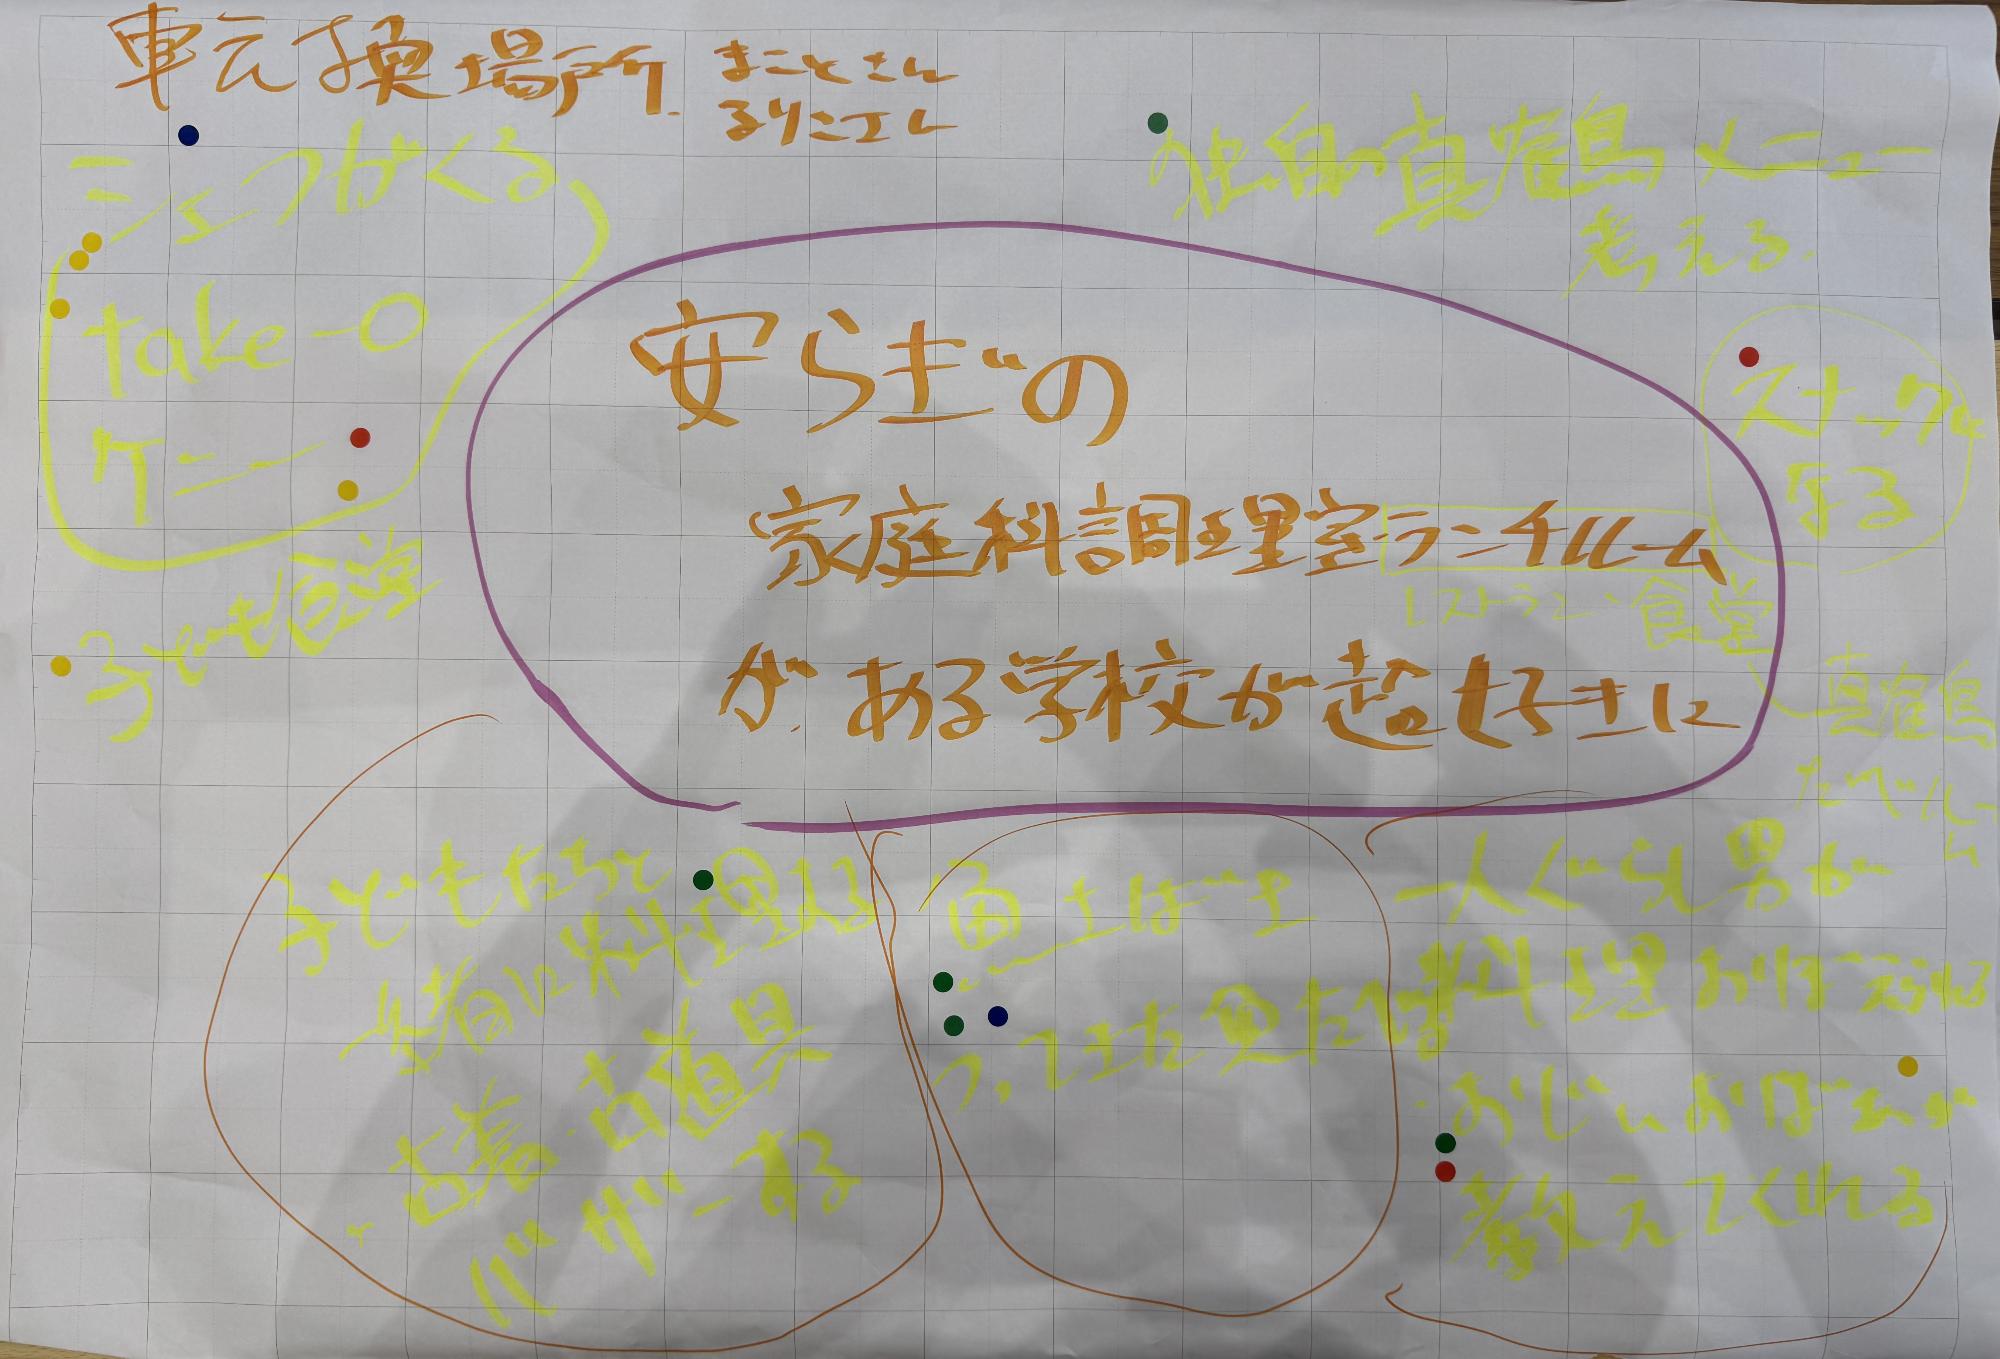 転換場所
まことさん
るりこエレ
シェフがくる
take-O
ケニー
子ども食堂
独自の真雀鳥メニュー
考える.
スナックに
なる
安らぎの
家庭科調理室ランチルーム
レストラン・食堂
がある学校が超好きに
たべルーム
子どもたちと
一緒に料理する
・古着・古道具
バザーする
魚
つってきた魚たば
一人ぐらし男が
料理おぼえられる
・おじいおばあが
教えてくれる